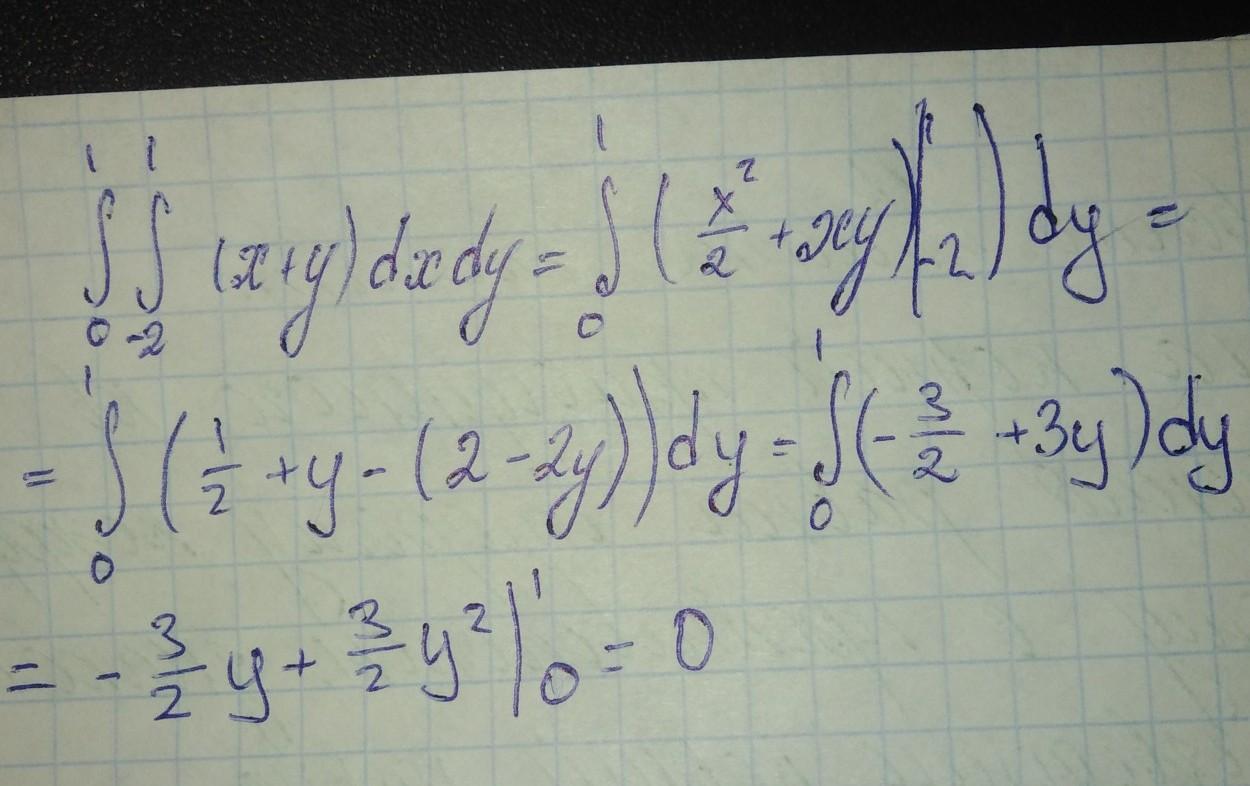 ∫₀¹ ∫₋₂¹ (x+y) dx dy = ∫₀¹ ( x²/2 + xy)|₋₂¹ ) dy =
= ∫₀¹ ( 1/2 + y - (2 - 2y)) dy = ∫₀¹ (- 3/2 + 3y) dy
= - 3/2 y + 3/2 y² |₀¹ = 0